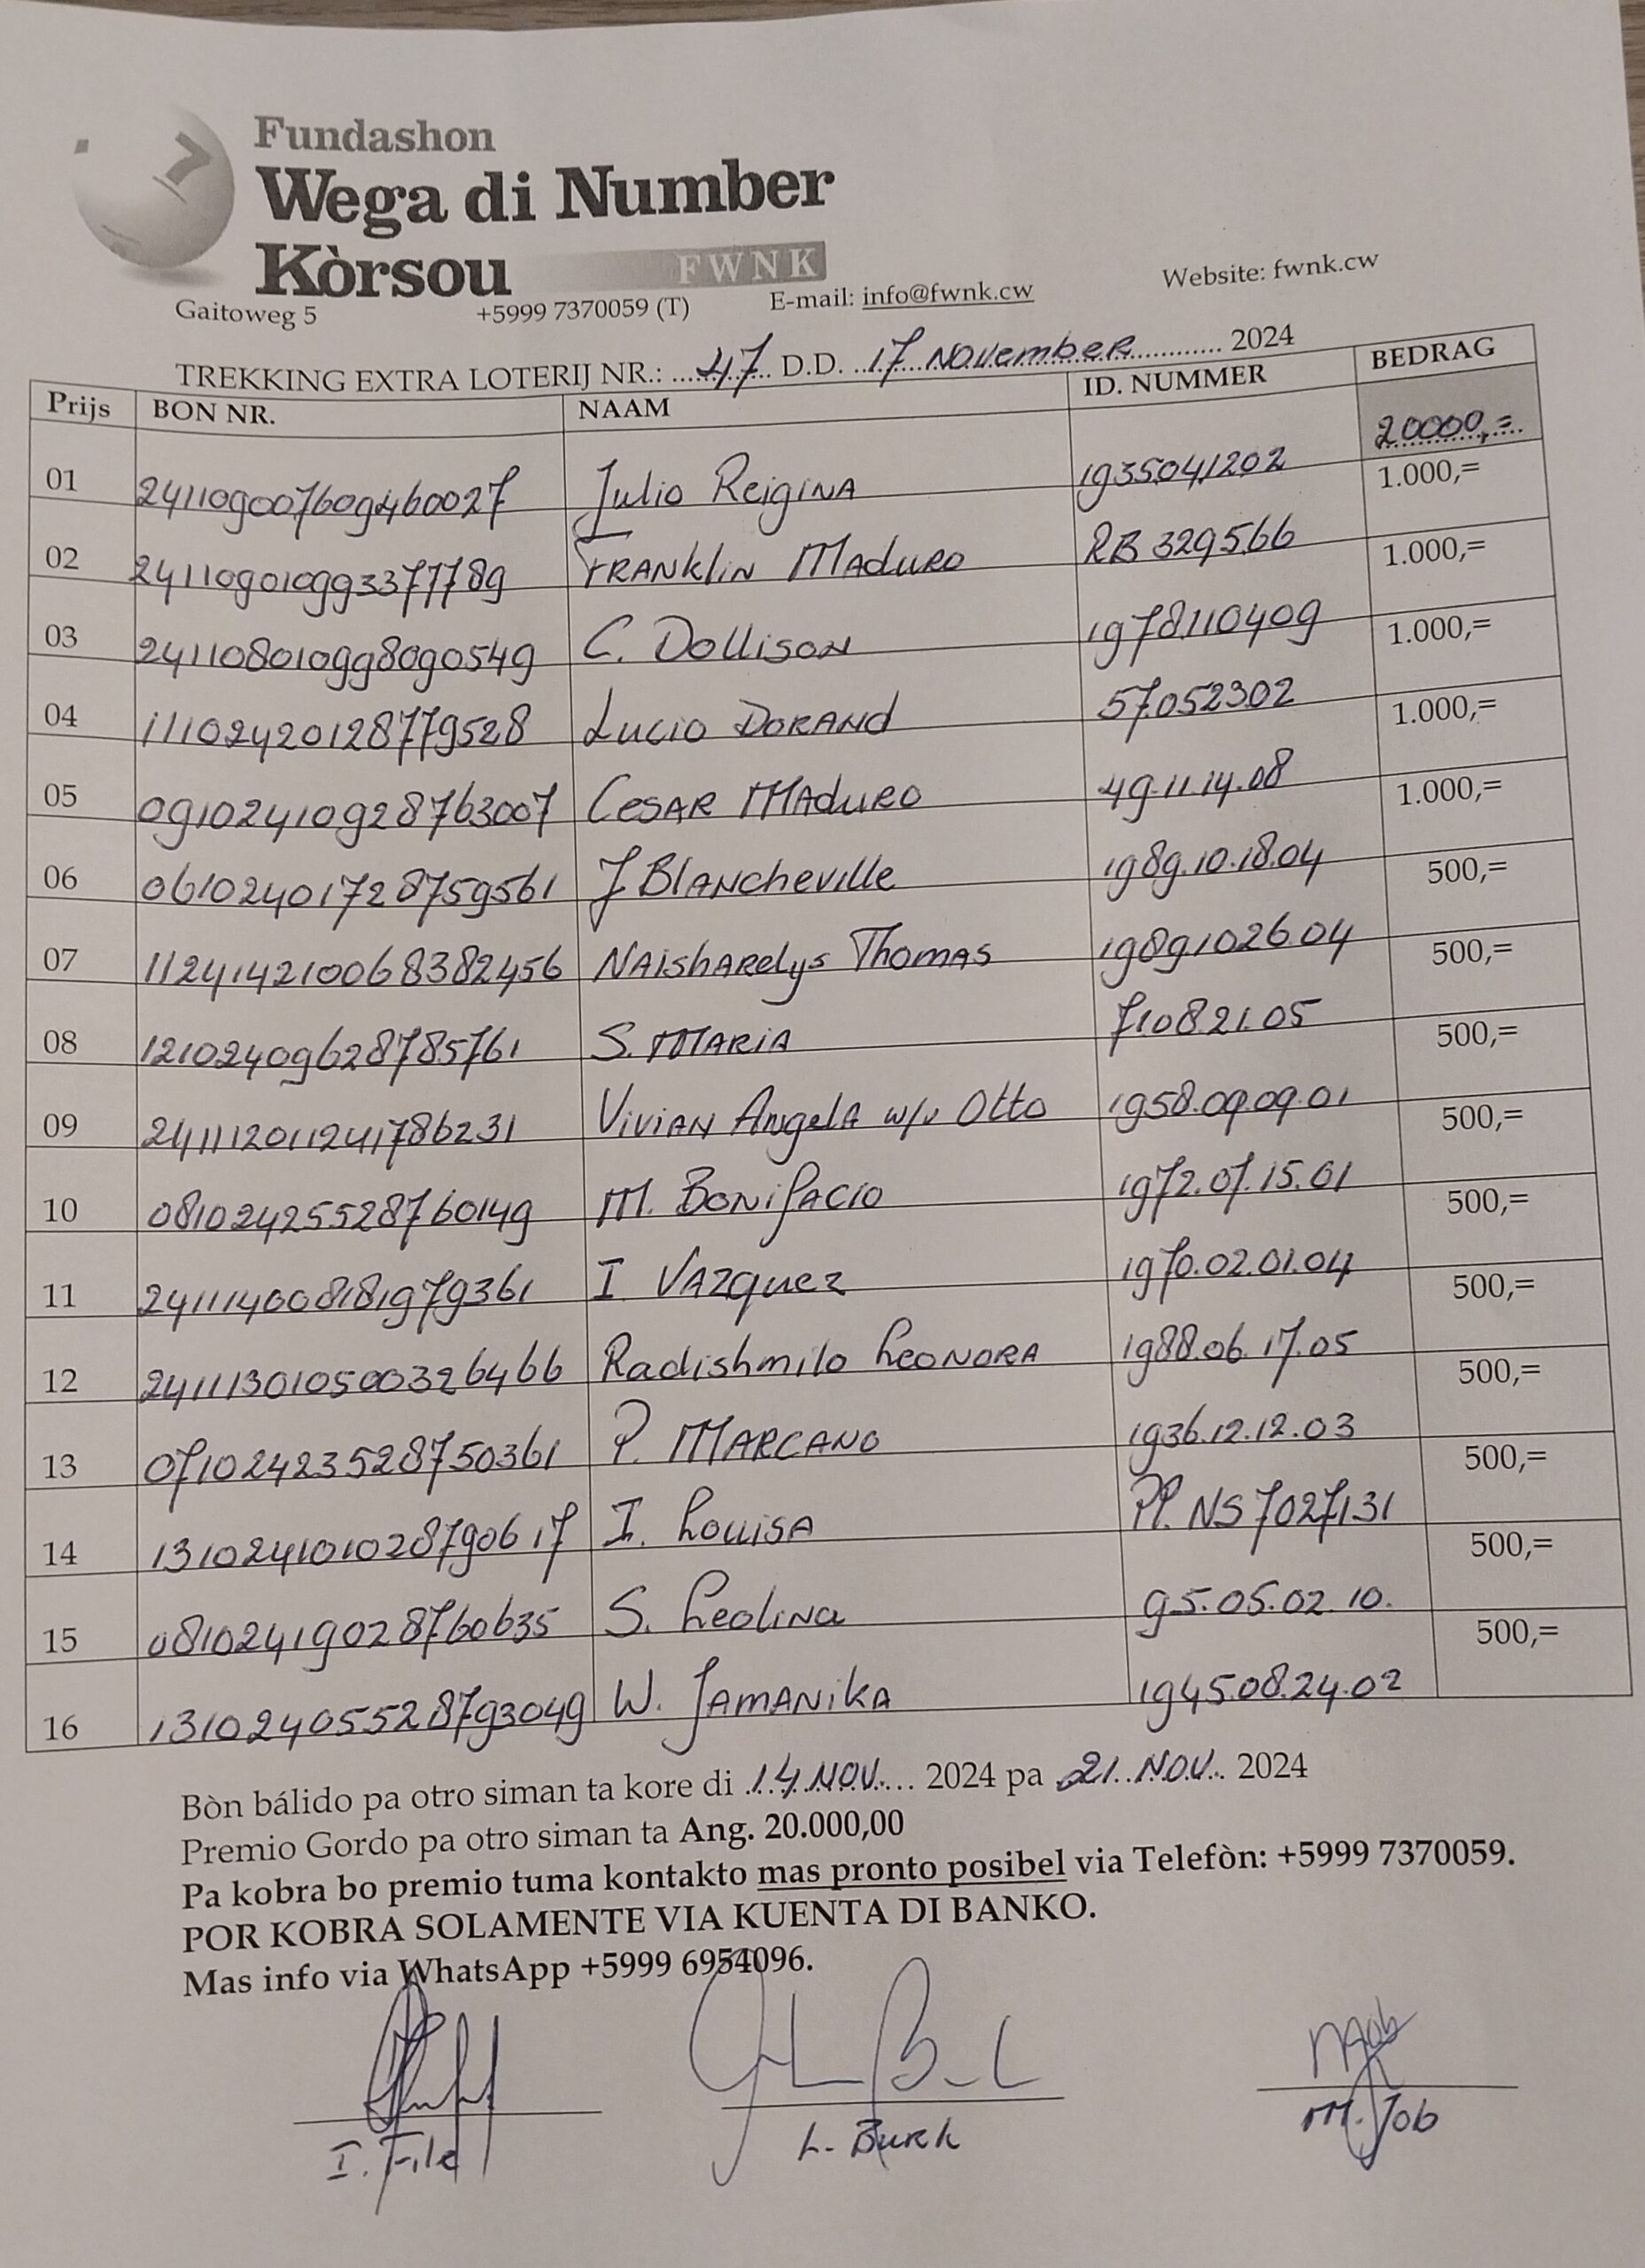 Fundashon
Wega di Number
Kòrsou FWNK
Gaitoweg 5 +5999 7370059 (T) E-mail: info@fwnk.cw Website: fwnk.cw
TREKKING EXTRA LOTERIJ NR.: ...47... D.D. ...17 November... 2024
Prijs BON NR. NAAM ID. NUMMER BEDRAG
01 241109007609460027 Julio Reigina 1935041202 20000,=
02 241109010993377789 Franklin Maduro RB 329566 1.000,=
03 241108010998090549 C. Dollison 1978110409 1.000,=
04 111024201287779528 Lucio Dorand 57052302 1.000,=
05 09102410928763007 Cesar Maduro 49.11.14.08 1.000,=
06 06102401728759561 J Blancheville 1989.10.18.04 1.000,=
07 112414210068382456 Naisharelys Thomas 1989102604 500,=
08 12102409628785761 S. Maria 71082105 500,=
09 241112011241786231 Vivian Angela w/v Otto 1958.09.09.01 500,=
10 08102425528760149 M. Bonifacio 1972.07.15.01 500,=
11 241114008181979361 I Vazquez 1970.02.01.04 500,=
12 241113010500326466 Radishmilo Leonora 1988.06.17.05 500,=
13 07102423528750361 P. Marcano 1936.12.12.03 500,=
14 131024101028790617 I. Louisa PP. NS7027131 500,=
15 08102419028760635 S. Leolina 95.05.02.10. 500,=
16 13102405528793049 W. Jamanika 1945.08.24.02 500,=
500,=
Bòn bálido pa otro siman ta kore di ..14.Nov.... 2024 pa 21..Nov.. 2024
Premio Gordo pa otro siman ta Ang. 20.000,00
Pa kobra bo premio tuma kontakto mas pronto posibel via Telefòn: +5999 7370059.
POR KOBRA SOLAMENTE VIA KUENTA DI BANKO.
Mas info via WhatsApp +5999 6954096.
I. File L. Burk M. Job